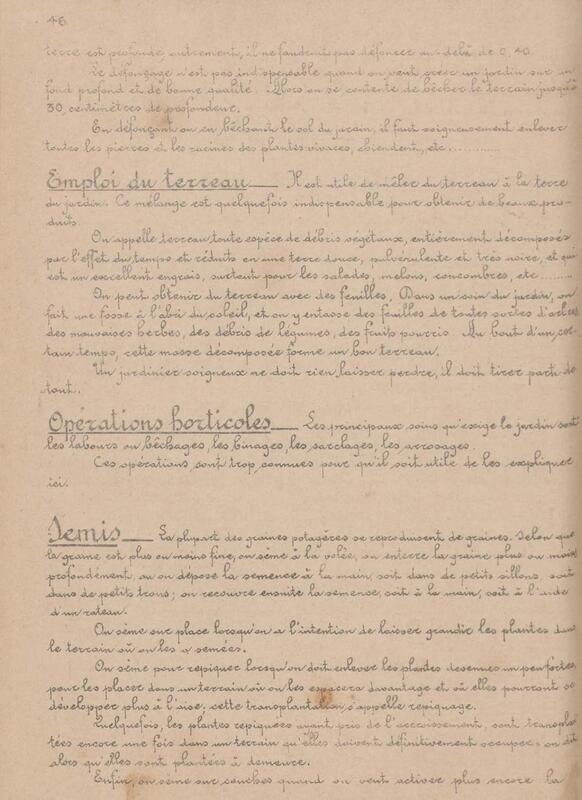 46
terre est profonde, autrement, il ne faudrait pas défoncer au-delà de 0,40.
Le défonçage n'est pas indispensable quand on veut créer un jardin sur un
fond profond et de bonne qualité. Alors on se contente de bêcher le terrain jusqu'à
30, centimètres de profondeur.
En défonçant ou en bêchant le sol du jardin, il faut soigneusement enlever
toutes les pierres et les racines des plantes vivaces, chiendent, etc...........
Emploi du terreau___ Il est utile de mêler du terreau à la terre
du jardin. Ce mélange est quelquefois indispensable pour obtenir de beaux pro-
duits.
On appelle terreau toute espèce de débris végétaux, entièrement décomposés
par l'effet du temps et réduits en une terre douce, pulvérulente et très noire, et qui
est un excellent engrais, surtout pour les salades, melons, concombres, etc.........
On peut obtenir du terreau avec des feuilles. Dans un coin du jardin, on
fait une fosse à l'abri du soleil, et on y entasse des feuilles de toutes sortes d'arbres
des mauvaises herbes, des débris de légumes, des fruits pourris. Au bout d'un cer-
tain temps, cette masse décomposée forme un bon terreau.
Un jardinier soigneux ne doit rien laisser perdre, il doit tirer parti de
tout.
Opérations horticoles___ Les principaux soins qu'exige le jardin sont
les labours ou bêchages, les binages, les sarclages, les arrosages.
Ces opérations sont trop connues pour qu'il soit utile de les expliquer
ici.
Semis___ La plupart des graines potagères se reproduisent de graines. Selon que
la graine est plus ou moins fine, on sème à la volée, on enterre la graine plus ou moins
profondément, ou on dépose la semence à la main, soit dans de petits sillons, soit
dans de petits trous; on recouvre ensuite la semense, soit à la main, soit à l'aide
d'un rateau.
On sème sur place lorsqu'on a l'intention de laisser grandir les plantes dans
le terrain où on les a semées.
On sème pour repiquer lorsqu'on doit enlever les plantes devenues un peu fortes
pour les placer dans un terrain où on les espacera davantage et où elles pourront se
développer plus à l'aise; cette transplantation s'appelle repiquage.
Quelquefois, les plantes repiquées ayant pris de l'accroissement, sont transplan-
tées encore une fois dans un terrain qu'elles doivent définitivement occuper; on dit
alors qu'elles sont plantées à demeure.
Enfin, on sème sur couches quand on veut activer plus encore la